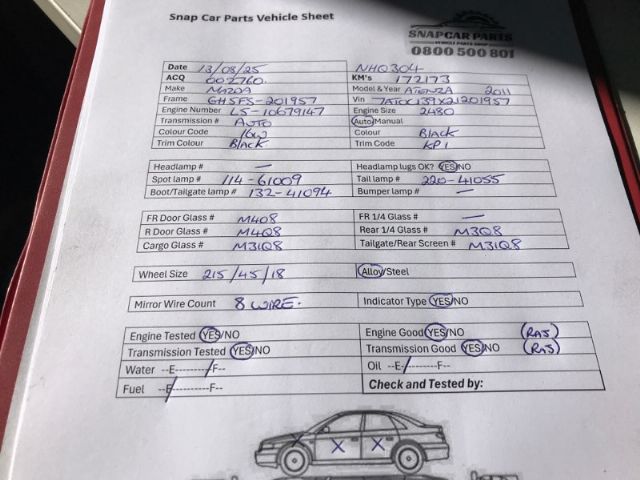 Snap Car Parts Vehicle Sheet
SNAPCAR PARTS
0800 500 801
Date 13/08/25 NHQ304
ACQ 602760 KM's 172173
Make MAZDA Model & Year ATENZA 2011
Frame GH5FS-201957 Vin 7AT0C139X21201957
Engine Number L5-10679147 Engine Size 2480
Transmission # AUTO Auto/Manual
Colour Code 16W Colour Black
Trim Colour Black Trim Code KP1
Headlamp # — Headlamp lugs OK? YES/NO
Spot lamp # 114-61009 Tail lamp # 220-41055
Boot/Tailgate lamp # 132-41094 Bumper lamp # —
FR Door Glass # M408 FR 1/4 Glass # —
R Door Glass # M4Q8 Rear 1/4 Glass # M3Q8
Cargo Glass # M31Q8 Tailgate/Rear Screen # M31Q8
Wheel Size 215/45/18 Alloy/Steel
Mirror Wire Count 8 WIRE. Indicator Type YES/NO
Engine Tested YES/NO Engine Good YES/NO (RAS)
Transmission Tested YES/NO Transmission Good YES/NO (RAS)
Water --E--------/F-- Oil --E-/--------F--
Fuel --E/---------F-- Check and Tested by:
X X